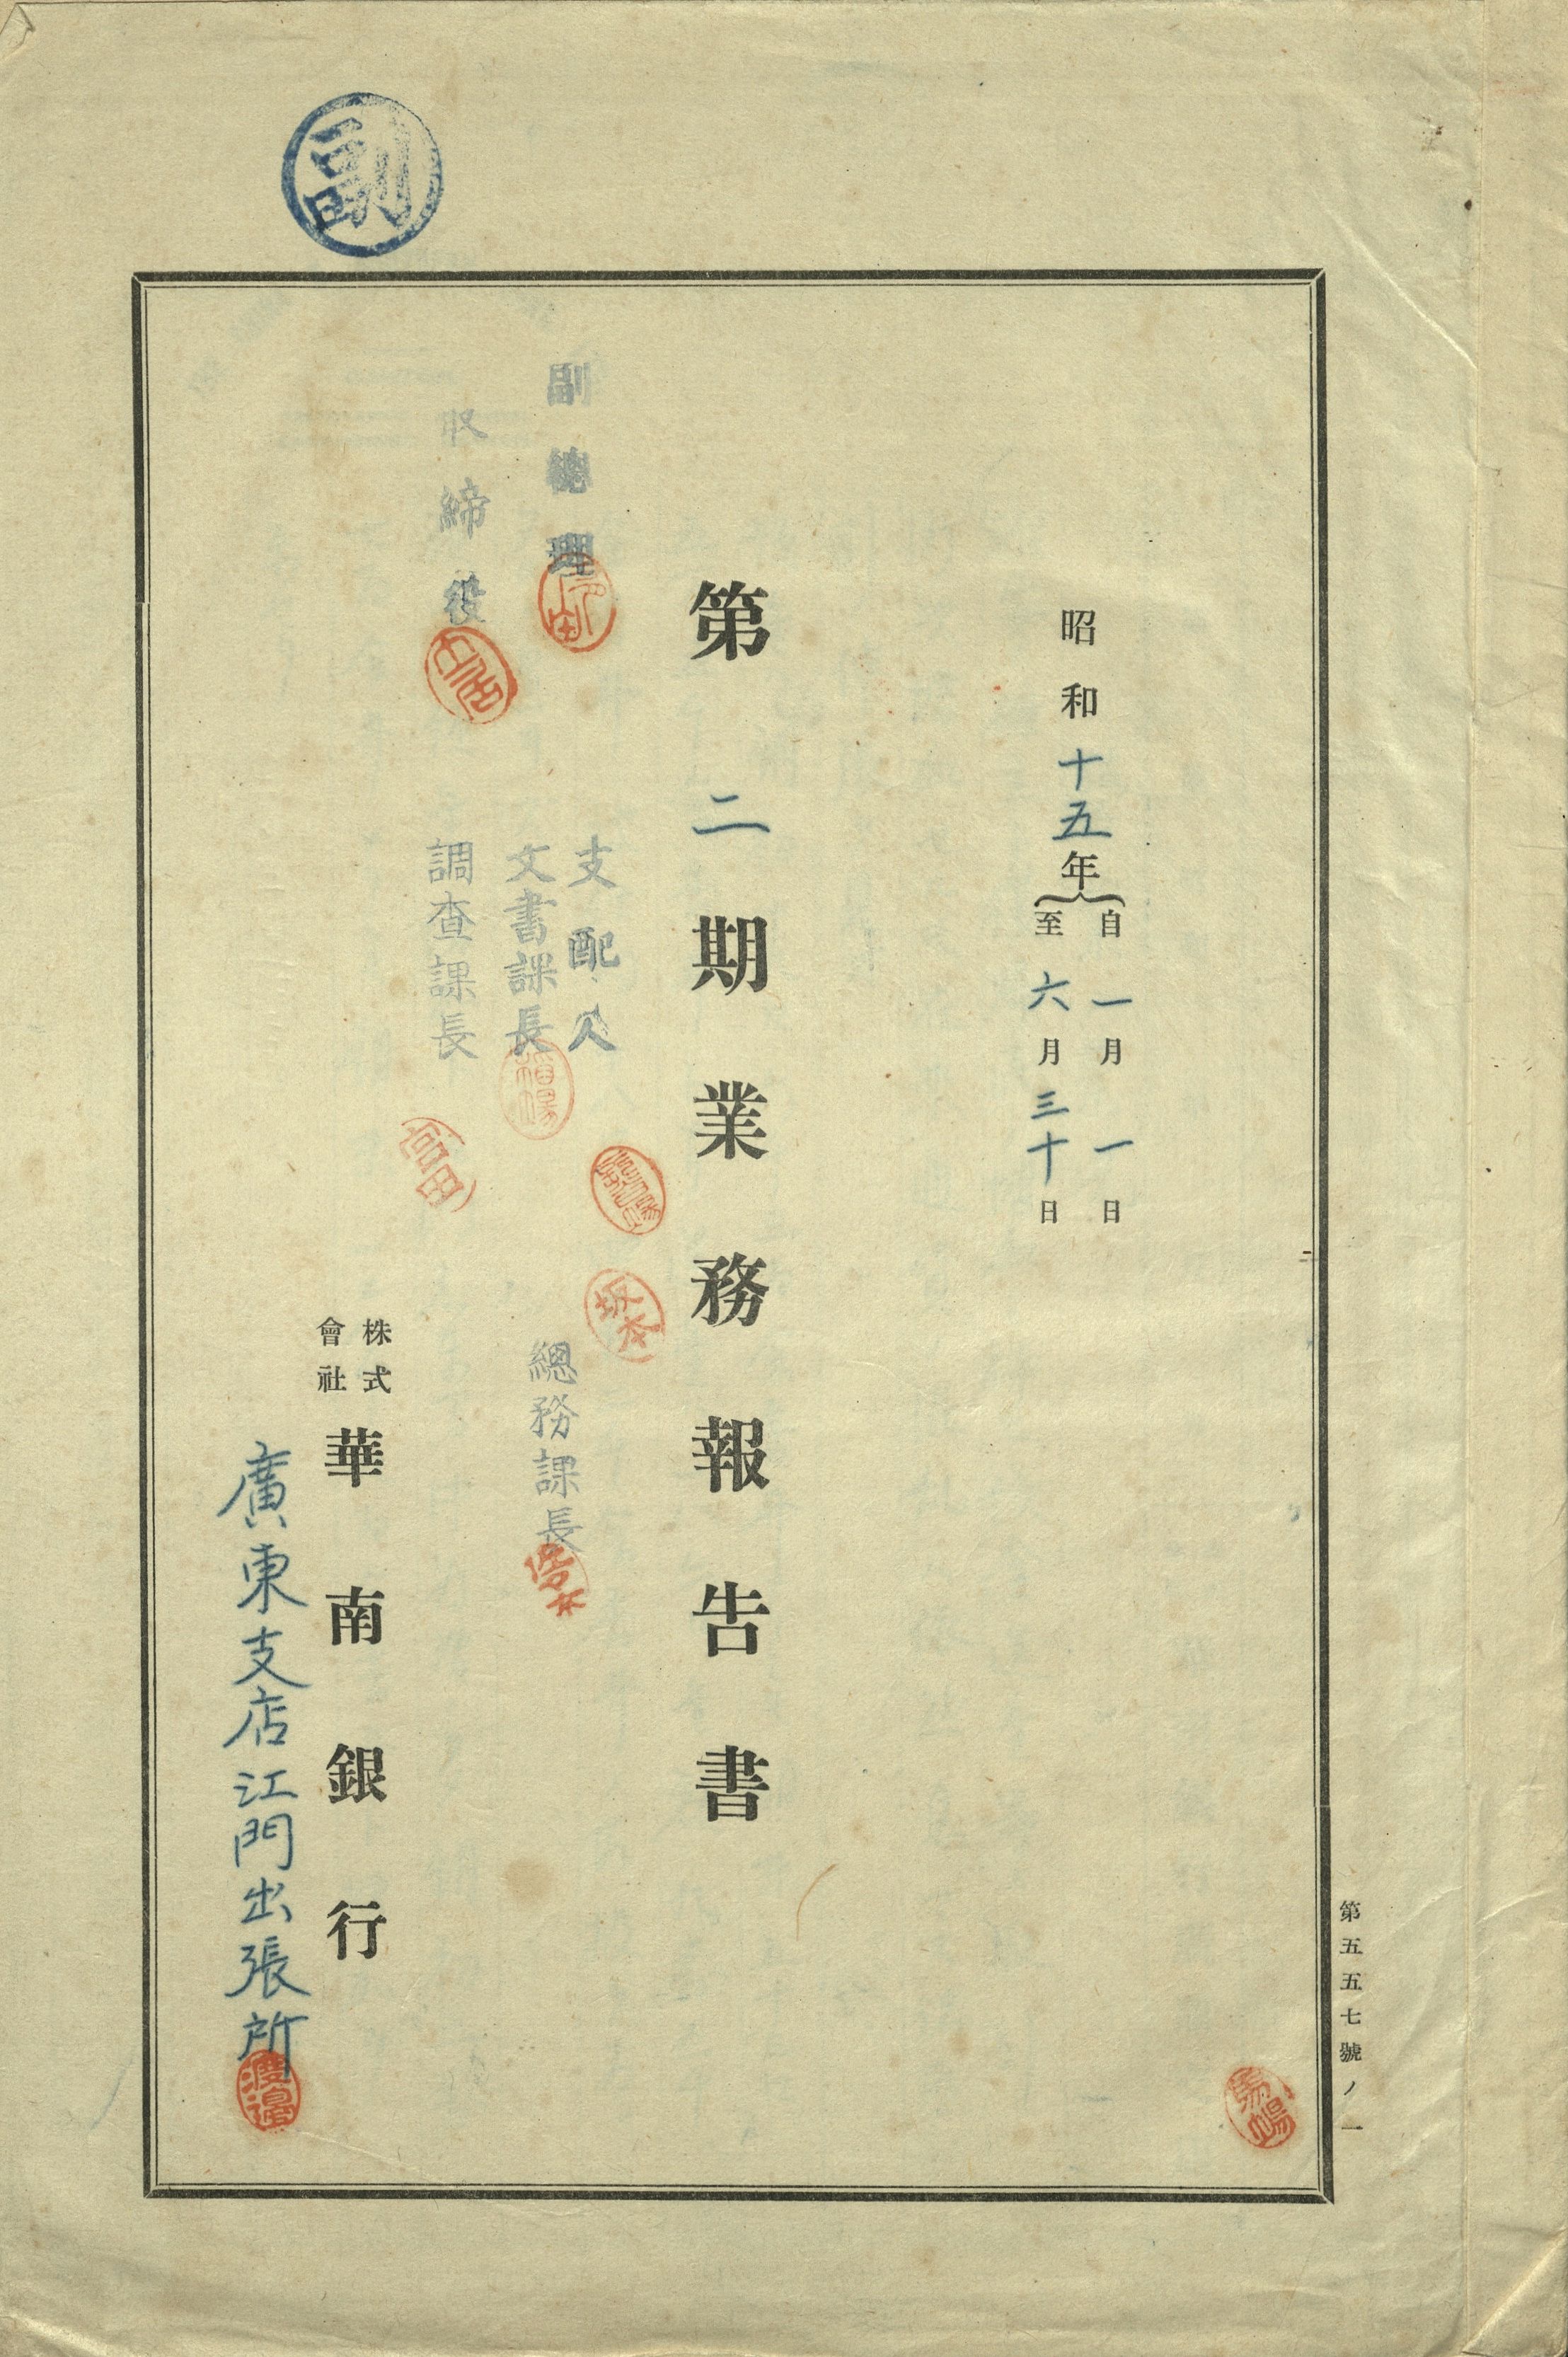 副
第五五七號ノ一
昭和十五年
自一月一日
至六月三十日
第二期業務報告書
副總理
取締役
支配人
文書課長
調查課長
坂本
總務課長
富田
株式會社華南銀行
廣東支店江門出張所
渡邊